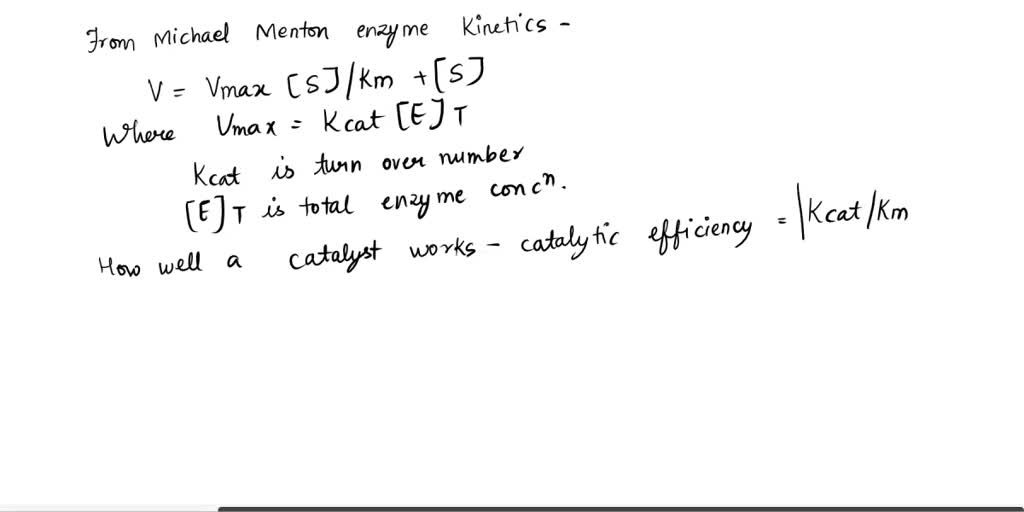 From Michael Menton enzyme Kinetics -
V = Vmax [S]/Km + [S]
Where Vmax = Kcat [E]T
Kcat is turn over number
[E]T is total enzyme concⁿ.
How well a catalyst works - catalytic efficiency = |Kcat/Km